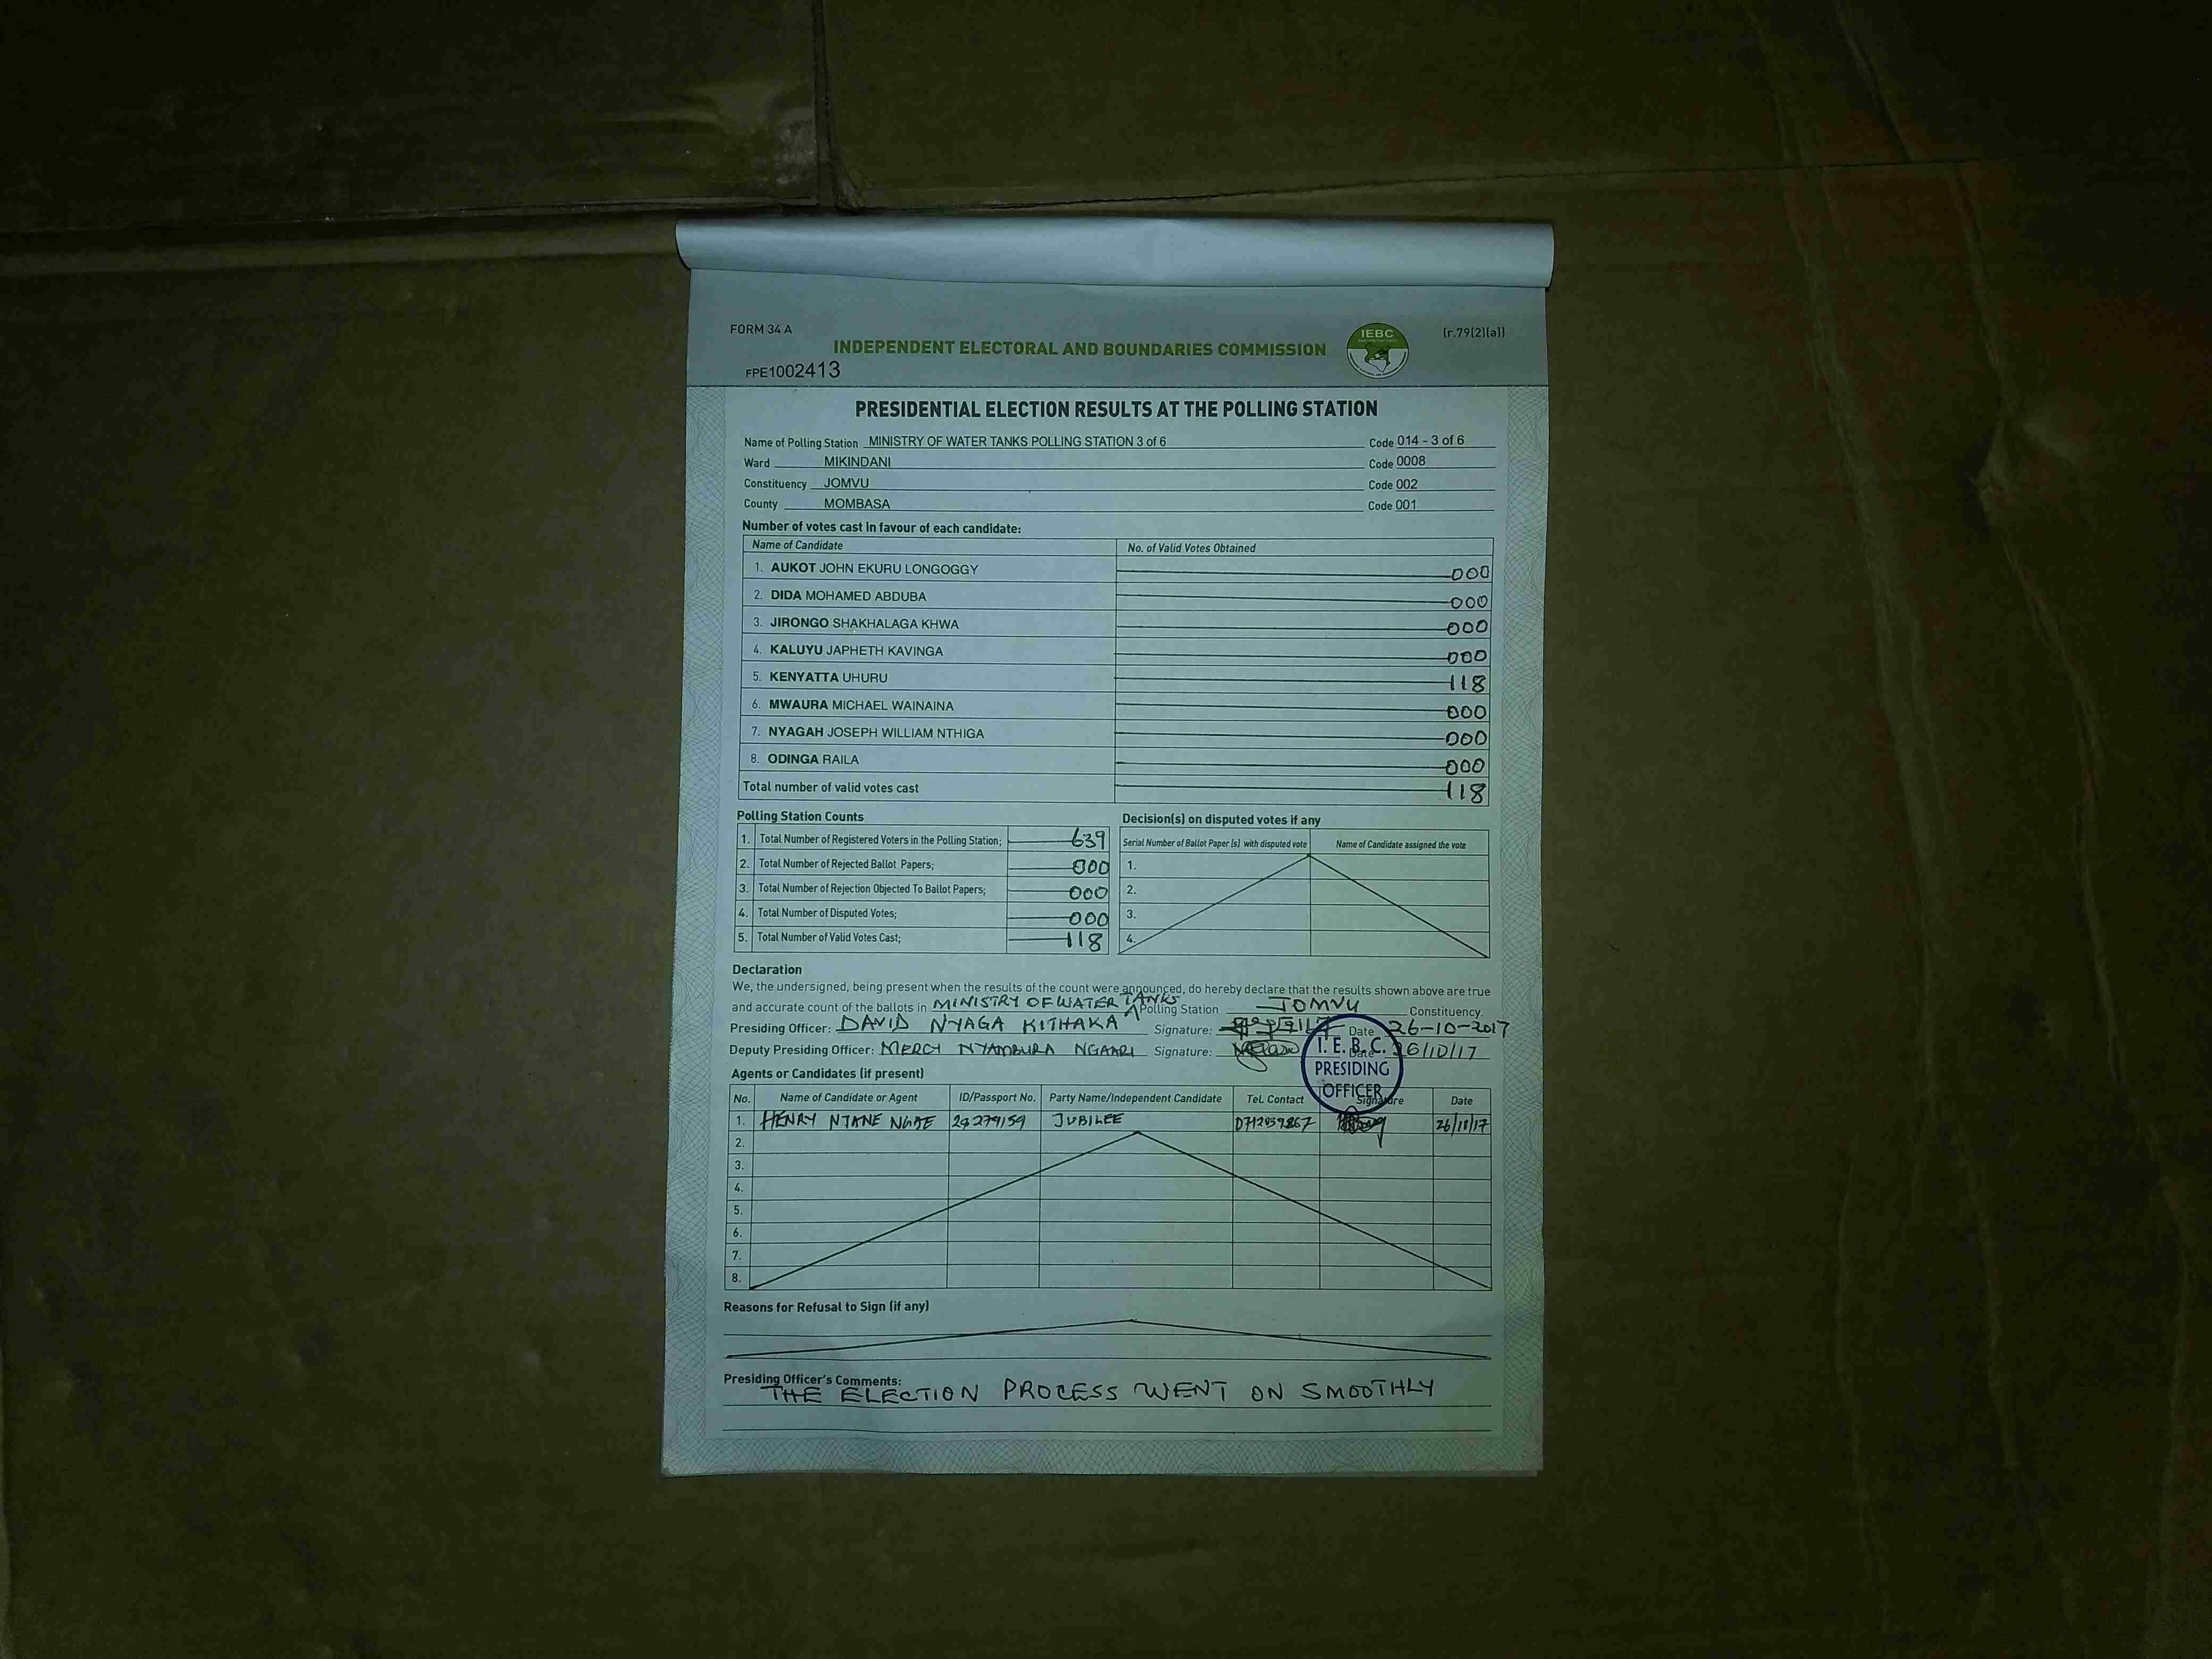 FORM 34 A
IEBC
(r.79(2)(a))
INDEPENDENT ELECTORAL AND BOUNDARIES COMMISSION
FPE1002413
PRESIDENTIAL ELECTION RESULTS AT THE POLLING STATION
Name of Polling Station MINISTRY OF WATER TANKS POLLING STATION 3 of 6 Code 014 - 3 of 6
Ward MIKINDANI Code 0008
Constituency JOMVU Code 002
County MOMBASA Code 001
Number of votes cast in favour of each candidate:
Name of Candidate No. of Valid Votes Obtained
1. AUKOT JOHN EKURU LONGOGGY 000
2. DIDA MOHAMED ABDUBA 000
3. JIRONGO SHAKHALAGA KHWA 000
4. KALUYU JAPHETH KAVINGA 000
5. KENYATTA UHURU 118
6. MWAURA MICHAEL WAINAINA 000
7. NYAGAH JOSEPH WILLIAM NTHIGA 000
8. ODINGA RAILA 000
Total number of valid votes cast 118
Polling Station Counts
1. Total Number of Registered Voters in the Polling Station; 639
2. Total Number of Rejected Ballot Papers; 000
3. Total Number of Rejection Objected To Ballot Papers; 000
4. Total Number of Disputed Votes; 000
5. Total Number of Valid Votes Cast; 118
Decision(s) on disputed votes if any
Serial Number of Ballot Paper (s) with disputed vote Name of Candidate assigned the vote
1.
2.
3.
4.
Declaration
We, the undersigned, being present when the results of the count were announced, do hereby declare that the results shown above are true
and accurate count of the ballots in MINISTRY OF WATER TANKS Polling Station JOMVU Constituency.
Presiding Officer: DAVID NYAGA KITHAKA Signature: Date 26-10-2017
Deputy Presiding Officer: MERCY NYAMBURA NGAARI Signature: Date 26/10/17
I.E.B.C.
PRESIDING
OFFICER
Agents or Candidates (if present)
No. Name of Candidate or Agent ID/Passport No. Party Name/Independent Candidate Tel. Contact Signature Date
1. HENRY JUBILEE 26/10/17
2.
3.
4.
5.
6.
7.
8.
Reasons for Refusal to Sign (if any)
Presiding Officer's Comments:
THE ELECTION PROCESS WENT ON SMOOTHLY